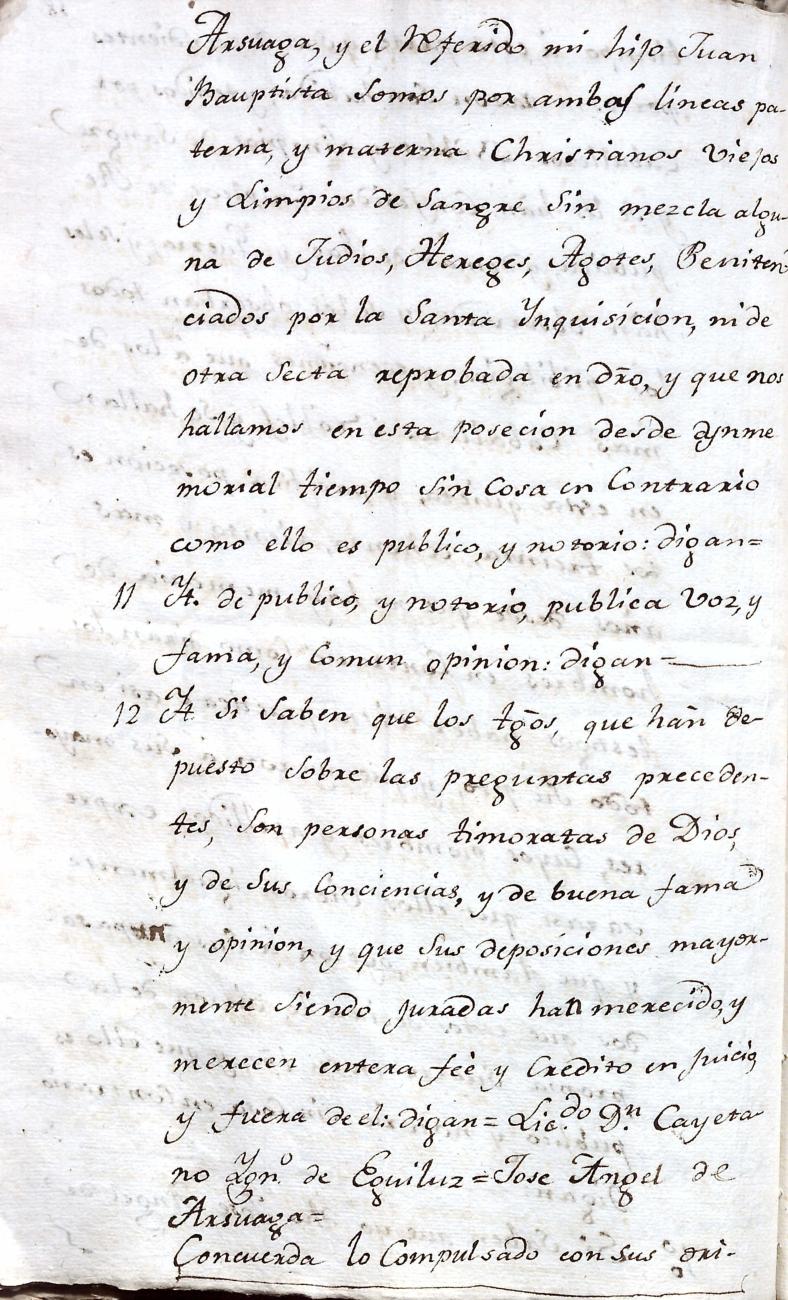 Arsuaga, y el Referido mi hijo Juan
Bauptista Somos por ambas lineas pa-
terna, y materna Christianos Viejos
y Limpios de Sangre Sin mezcla algu-
na de Judios, Hereges, Agotes, Peniten
ciados por la Santa Ynquisicion, ni de
otra Secta reprobada en dr̃o, y que nos
hallamos en esta posecion desde Ynme
morial tiempo Sin Cosa en Contrario
como ello es publico, y notorio: digan=
11 Yt. de publico, y notorio, publica Voz, y
fama, y Comun opinion: digan=
12 Yt Si Saben que los tg̃os, que hãn de-
puesto Sobre las preguntas preceden-
tes, Son personas timoratas de Dios,
y de Sus Conciencias, y de buena fama
y opinion, y que Sus deposiciones mayor-
mente Siendo Juradas han merecido, y
merecen entera feè y Credito en Juicio,
y fuera de el: digan= Lic.do D.n Cayeta
no Ygn.o de Eguiluz=Jose Angel de
Arsuaga=
Concuerda lo Compulsado con sus ori-